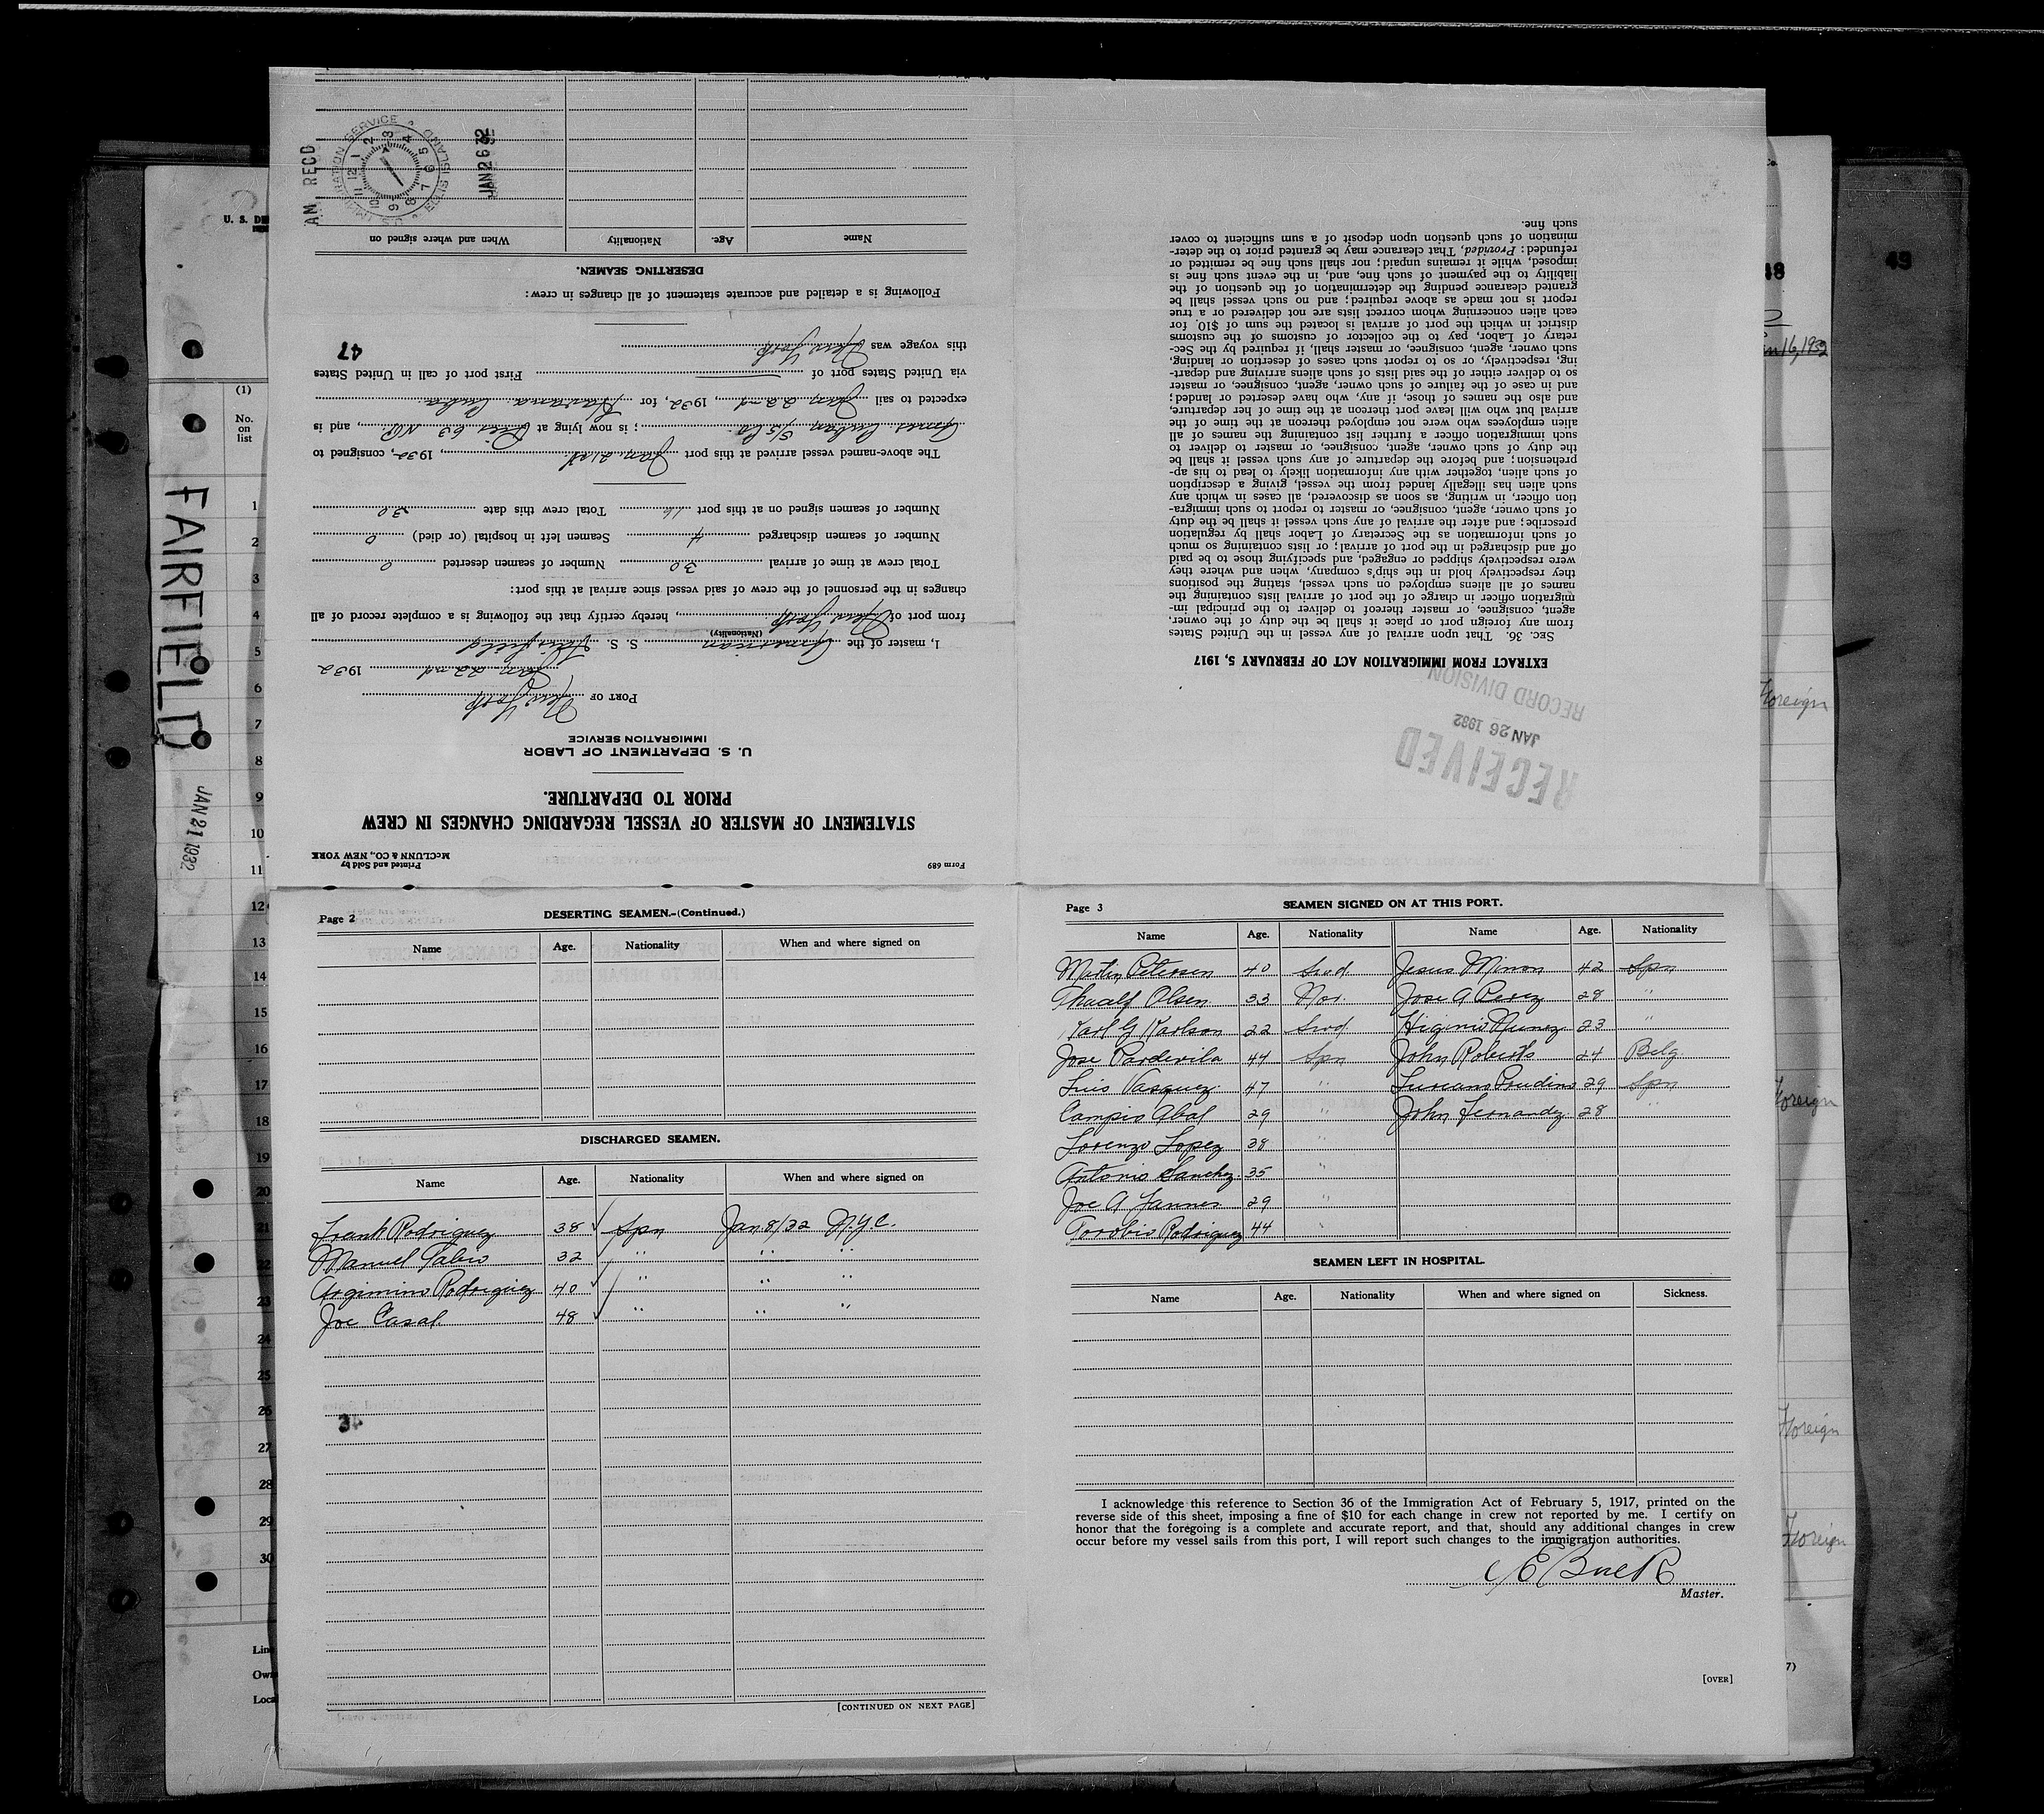 Form 689
Printed and Sold by
McCLUNN & CO., NEW YORK
STATEMENT OF MASTER OF VESSEL REGARDING CHANGES IN CREW
PRIOR TO DEPARTURE.
U. S. DEPARTMENT OF LABOR
IMMIGRATION SERVICE
PORT OF New York
Jan 22nd 1932
I, master of the American S. S. Fairfield
(Nationality)
from port of New York, hereby certify that the following is a complete record of all
changes in the personnel of the crew of said vessel since arrival at this port:
Total crew at time of arrival 30 Number of seamen deserted 0
Number of seamen discharged 4 Seamen left in hospital (or died) 0
Number of seamen signed on at this port 16 Total crew this date 30
The above-named vessel arrived at this port Jan. 21st, 1932, consigned to
Cuban S/S Co.; is now lying at Pier 63 N.R., and is
expected to sail Jan 22nd, 1932, for Havana Cuba
via United States port of First port of call in United States
this voyage was New York
47
Following is a detailed and accurate statement of all changes in crew:
DESERTING SEAMEN.
Name Age. Nationality When and where signed on
AM RECD
U.S. IMMIGRATION SERVICE ELLIS ISLAND
1 2 3 4 5 6 7 8 9 10 11 12
JAN 26 32
RECEIVED
JAN 26 1932
RECORD DIVISION
EXTRACT FROM IMMIGRATION ACT OF FEBRUARY 5, 1917
Sec. 36. That upon arrival of any vessel in the United States
from any foreign port or place it shall be the duty of the owner,
agent, consignee, or master thereof to deliver to the principal im-
migration officer in charge of the port of arrival lists containing the
names of all aliens employed on such vessel, stating the positions
they respectively hold in the ship's company, when and where they
were respectively shipped or engaged, and specifying those to be paid
off and discharged in the port of arrival; or lists containing so much
of such information as the Secretary of Labor shall by regulation
prescribe; and after the arrival of any such vessel it shall be the duty
of such owner, agent, consignee, or master to report to such immigra-
tion officer, in writing, as soon as discovered, all cases in which any
such alien has illegally landed from the vessel, giving a description
of such alien, together with any information likely to lead to his ap-
prehension; and before the departure of any such vessel it shall be
the duty of such owner, agent, consignee, or master to deliver to
such immigration officer a further list containing the names of all
alien employees who were not employed thereon at the time of the
arrival but who will leave port thereon at the time of her departure,
and also the names of those, if any, who have deserted or landed;
and in case of the failure of such owner, agent, consignee, or master
so to deliver either of the said lists of such aliens arriving and depart-
ing, respectively, or so to report such cases of desertion or landing,
such owner, agent, consignee, or master shall, if required by the Sec-
retary of Labor, pay to the collector of customs of the customs
district in which the port of arrival is located the sum of $10 for
each alien concerning whom correct lists are not delivered or a true
report is not made as above required; and no such vessel shall be
granted clearance pending the determination of the question of the
liability to the payment of such fine, and, in the event such fine is
imposed, while it remains unpaid; nor shall such fine be remitted or
refunded: Provided, That clearance may be granted prior to the deter-
mination of such question upon deposit of a sum sufficient to cover
such fine.
Page 2 DESERTING SEAMEN.-(Continued.)
Name Age. Nationality When and where signed on
DISCHARGED SEAMEN.
Name Age. Nationality When and where signed on
Frank Rodriguez 38 Spn Jan 8/32 N.Y.C.
Manuel 32 " " "
Argimiro Rodriguez 40 " " "
Joe Casal 48 " " "
[CONTINUED ON NEXT PAGE]
Page 3 SEAMEN SIGNED ON AT THIS PORT.
Name Age. Nationality Name Age. Nationality
Martin Petersen 40 Swd. Jesus Minon 42 Spn
Olsen 33 Nor. Jose A Perez 28 "
Karl G Karlson 22 Swd. Higinio Nunez 23 "
Jose 44 Spn John Roberts 24 Belg.
Luis Vasquez 47 " 29 Spn
Campio Abal 29 " John Fernandez 28 "
Lorenzo Lopez 38 "
Antonio Sanchez 35 "
Joe A 29 "
Rodriguez 44 "
SEAMEN LEFT IN HOSPITAL.
Name Age. Nationality When and where signed on Sickness.
I acknowledge this reference to Section 36 of the Immigration Act of February 5, 1917, printed on the
reverse side of this sheet, imposing a fine of $10 for each change in crew not reported by me. I certify on
honor that the foregoing is a complete and accurate report, and that, should any additional changes in crew
occur before my vessel sails from this port, I will report such changes to the immigration authorities.
Master.
[OVER]
FAIRFIELD
JAN 21 1932
U. S. DE
(1)
No.
on
list
1
2
3
4
5
6
7
8
9
10
11
12
13
14
15
16
17
18
19
20
21
22
23
24
25
26
27
28
29
30
Lin
Own
Loca
48
49
16, 1932
Foreign
Foreign
Foreign
Foreign
7)